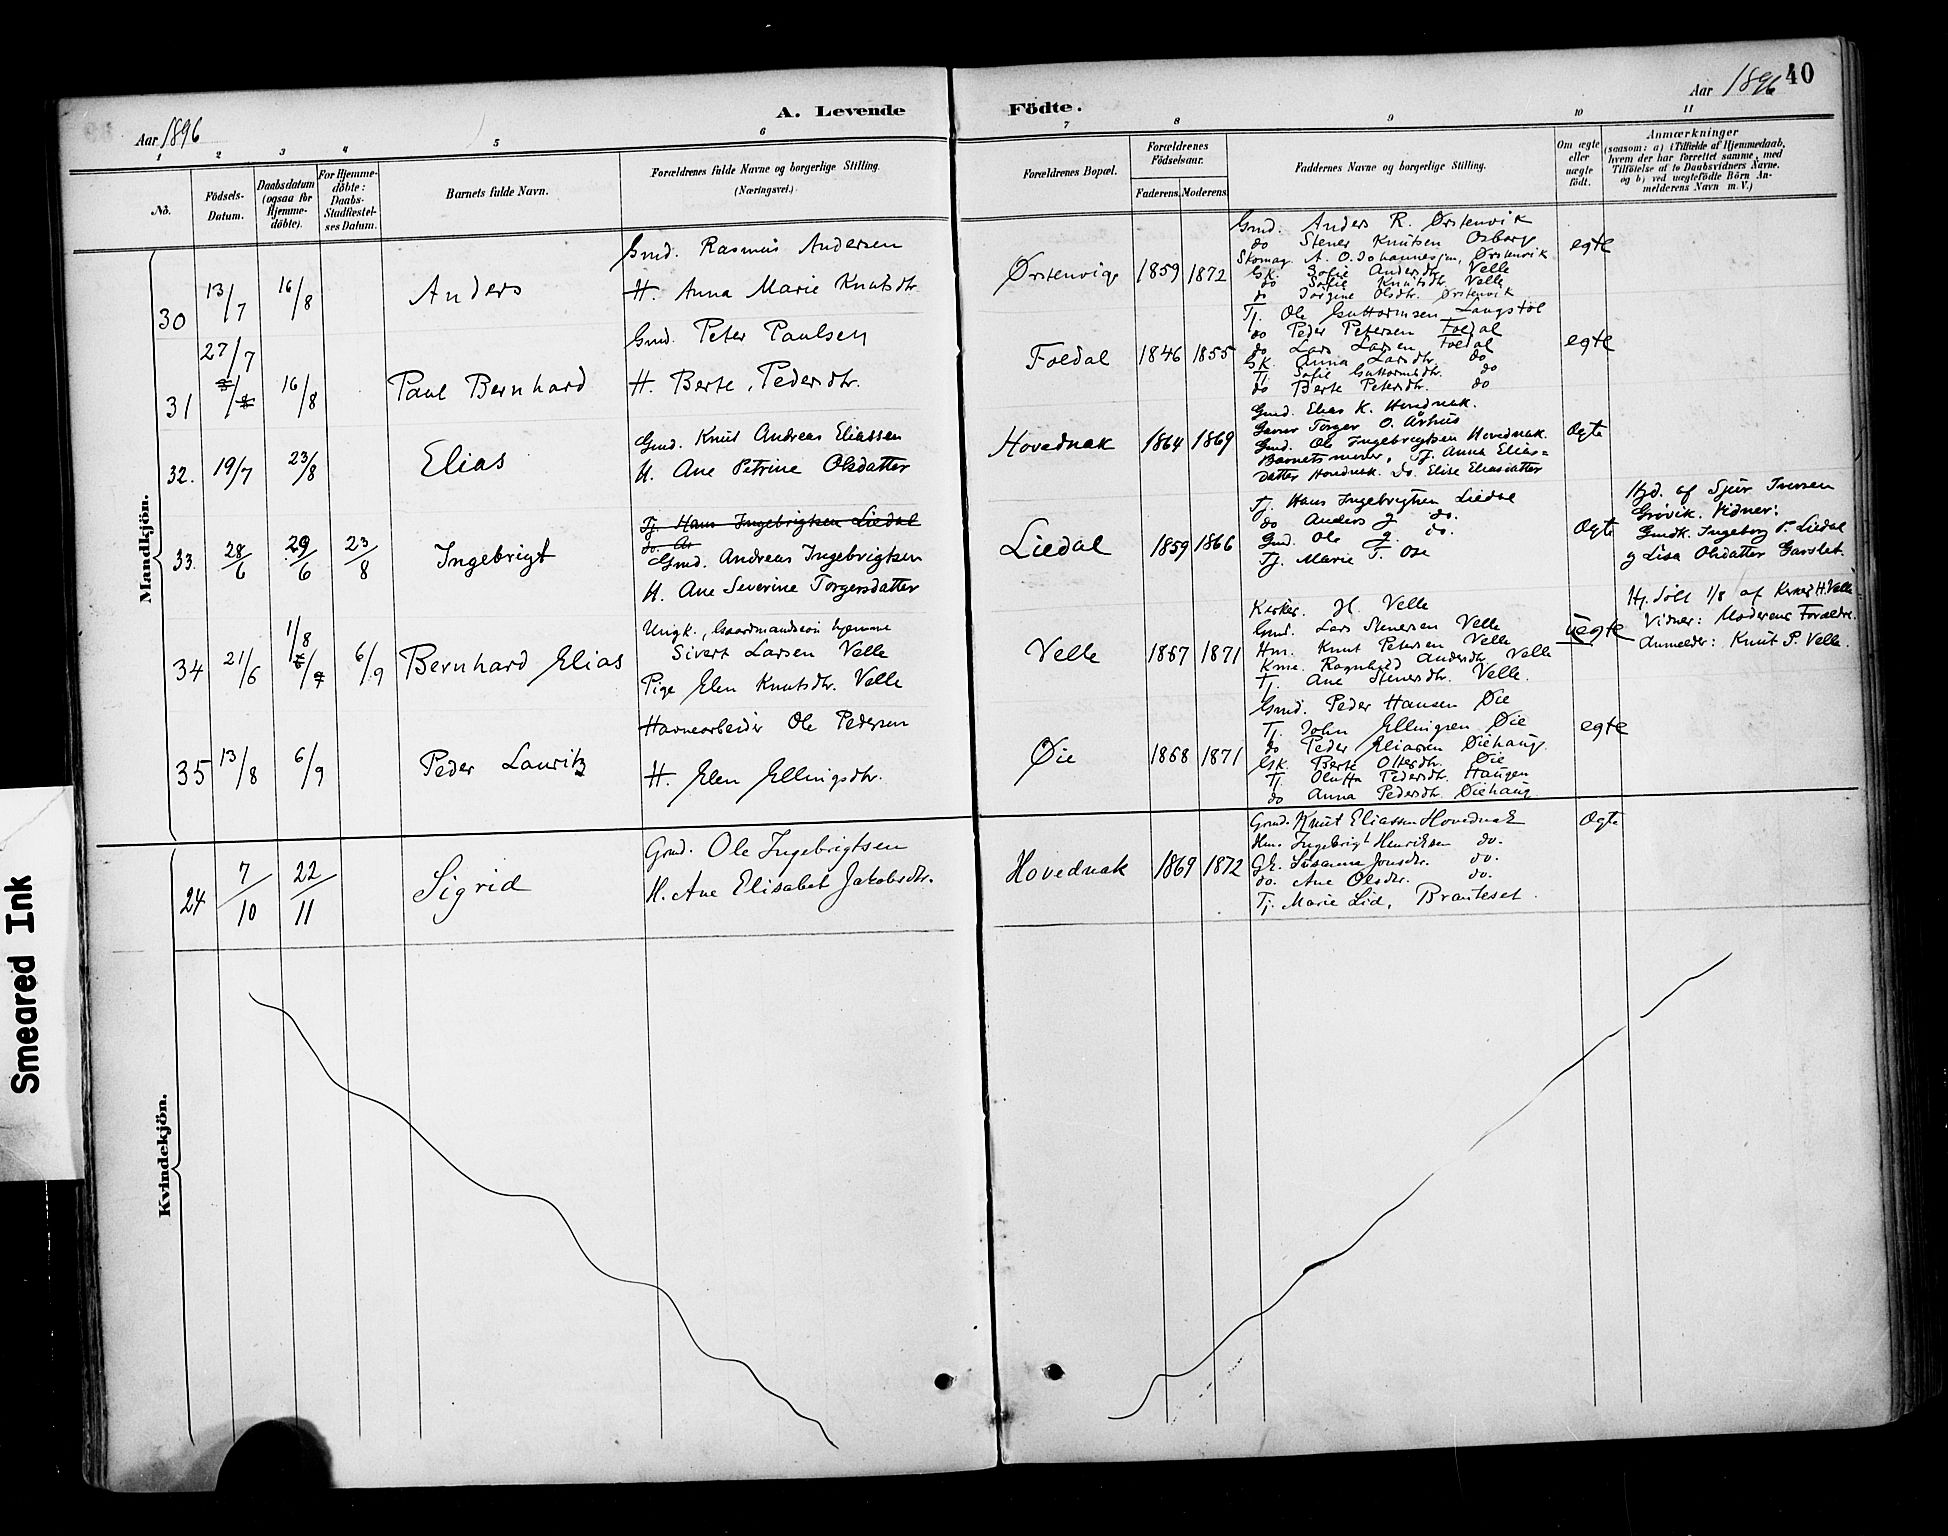 Aar 1896
A. Levende Födte.
Aar 1896 40
1 2 3 4 5 6 7 8 9 10 11
No.
Födsels-Datum.
Daabsdatum (ogsaa for Hjemmedöbte).
For Hjemmedöbte: Daabs-Stadfæstelses Datum.
Barnets fulde Navn.
Forældrenes fulde Navne og borgerlige Stilling. (Næringsvei.)
Forældrenes Bopæl.
Forældrenes Födselsaar.
Faderens. Moderens.
Faddernes Navne og borgerlige Stilling.
Om ægte eller uægte födt.
Anmærkninger
(saasom: a) i Tilfælde af Hjemmedaab, hvem der har forrettet samme, med Tilföielse af to Daabsvidners Navne, og b) ved uægtefödte Börn Anmelderens Navn m. V.)
Mandkjön.
30
13/7
16/8
Anders
Gmd. Rasmus Andersen
H. Anna Marie Knutsdtr.
Ørstenvig
1859 1872
Gmd. Anders R. Ørstenvik
do Stener Knutsen Osborg
Skomag. A. O. Johannessen, Ørstenvik
Gk. Sofie Andersdtr. Velle
do Sofie Knutsdtr. Velle
do Jørgine Olsdtr. Ørstenvik
egte
31
27/7
16/8
Paul Bernhard
Gmd. Peter Paulsen
H. Berte Pedersdtr.
Foldal
1846 1855
Tj. Ole Guttormsen Langstøl
do Peder Petersen Foldal
do Lars Larsen Foldal
Gk. Anna Larsdtr. do
Tj. Sofie Guttormsdtr. do
do Berte Petersdtr. do
egte
32.
19/7
23/8
Elias
Gmd. Knut Andreas Eliassen
H. Ane Petrine Olsdatter
Hovednak
1864 1869
Gmd. Elias K. Hovdnak.
Garver Torger O. Århus
Gmd. Ole Ingebrigtsen Hovednak.
Barnets moder, Tj. Anna Elias=
datter Hovdnak. Do. Elise Eliasdatter
Ogte
33.
28/6
29/6
23/8
Ingebrigt
Tj. Hans Ingebrigtsen Liedal
do. An
Gmd. Andreas Ingebrigtsen
H. Ane Severine Torgersdatter
Liedal
1859 1866
Tj. Hans Ingebrigtsen Liedal
do Anders J. do.
Gmd. Ole J. do.
Tj. Marie T. Ose
Ogte
Hjd. af Sjur Iversen
Grøvik. Vidner:
Gmdk. Ingeborg P. Liedal
g Lisa Olsdatter Gavslet.
34
21/6
1/8
6/9
Bernhard Elias
Ungk., Gaardmandssøn hjemme
Sivert Larsen Velle
Pige Elen Knutsdtr. Velle
Velle
1867 1871
Kirkes. H. Velle
Gmd. Lars Stenersen Velle
Hm. Knut Petersen Velle
Kme. Ragnhild Andersdtr Velle
Tj. Ane Stenersdtr. Velle.
uegte
Hj. døbt 1/8 af Kirkes. H. Velle
Vidner: Moderens Forældre.
Anmelder: Knut P. Velle.
35
13/8
6/9
Peder Lauritz
Havnearbeider Ole Pedersen
H. Elen Ellingsdtr.
Øie
1868 1871
Gmd. Peder Hansen Øie
Tj. John Ellingsen Øie
do Peder Eliassen Øiehaug.
Gk. Berte Olsdtr. Øie
Tj. Oluffa Pedersdtr. Haugen
do Anna Pedersdtr. Øiehaug
egte
Kvindekjön.
24
7/10
22/11
Sigrid
Gmd. Ole Ingebrigtsen
H. Ane Elisabet Jakobsdtr.
Hovednak
1869 1872
Gmd. Knut Eliassen Hovednak
Hm. Ingebrigt Henriksen do.
Gk. Susanna Jonsdtr. do.
do. Ane Olsdtr. do.
Tj. Marie Lid, Brauteset.
Ogte
Smeared Ink